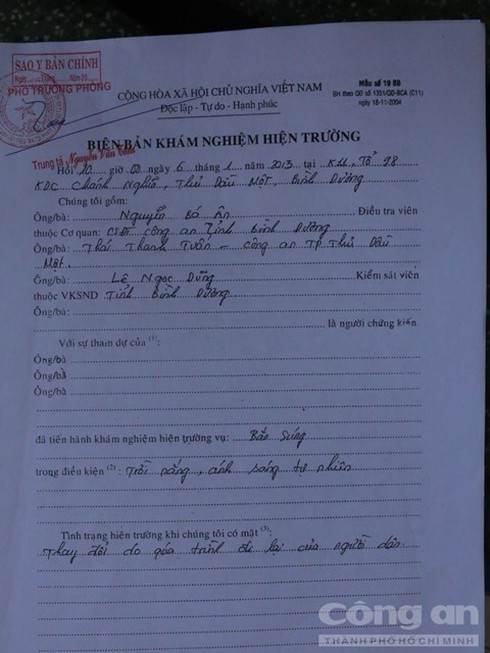 SAO Y BẢN CHÍNH
Ngày......tháng......Năm 20......
PHÓ TRƯỞNG PHÒNG
Trung tá Nguyễn Văn
Mẫu số 19 BB
BH theo QĐ số 1351/QĐ-BCA (C11)
ngày 18-11-2004
CỘNG HÒA XÃ HỘI CHỦ NGHĨA VIỆT NAM
Độc lập - Tự do - Hạnh phúc
BIÊN BẢN KHÁM NGHIỆM HIỆN TRƯỜNG
Hồi 10 giờ 00 ngày 6 tháng 1 năm 2013 tại K11, Tổ 98
KDC Chánh Nghĩa, Thủ Dầu Một, Bình Dương
Chúng tôi gồm:
Ông/bà: Nguyễn Bá Ân Điều tra viên
thuộc Cơ quan: CSĐT Công an Tỉnh Bình Dương
Ông/bà: Thái Thanh Tuấn - Công an TP Thủ Dầu
Một.
Ông/bà: Lê Ngọc Dũng Kiểm sát viên
thuộc VKSND Tỉnh Bình Dương
Ông/bà:
là người chứng kiến
Với sự tham dự của (1):
Ông/bà
Ông/bà
Ông/bà
đã tiến hành khám nghiệm hiện trường vụ: Bắn Súng
trong điều kiện (2): Trời nắng, ánh sáng tự nhiên
Tình trạng hiện trường khi chúng tôi có mặt (3):
Thay đổi do qúa trình đi lại của người dân
Công an
THÀNH PHỐ HỒ CHÍ MINH